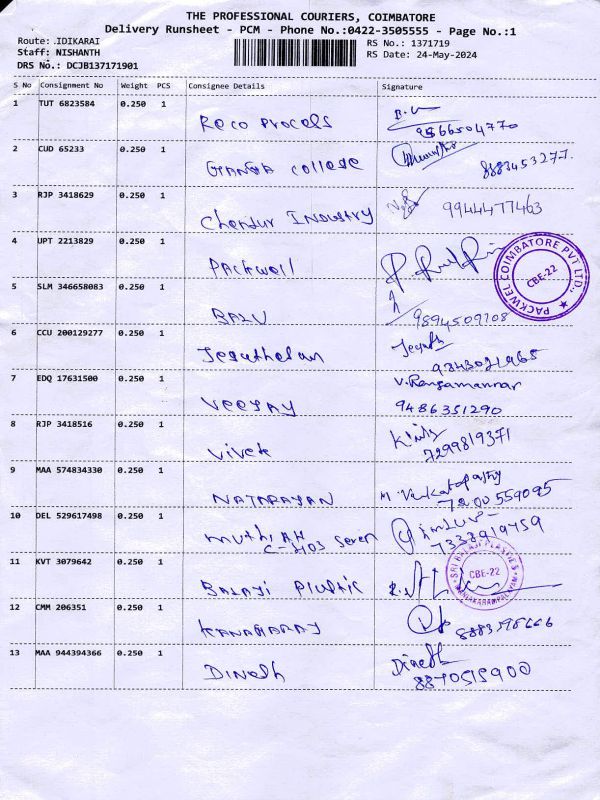 THE PROFESSIONAL COURIERS, COIMBATORE
Delivery Runsheet - PCM - Phone No.:0422-3505555 - Page No.:1
Route: .IDIKARAI RS No.: 1371719
Staff: NISHANTH RS Date: 24-May-2024
DRS No.: DCJB137171901
S No Consignment No Weight PCS Consignee Details Signature
1 TUT 6823584 0.250 1 Reco Process B.
9566504770
2 CUD 65233 0.250 1 GANGA College 8883453277.
3 RJP 3418629 0.250 1 Chendur INDUSTRY 9944477463
4 UPT 2213829 0.250 1 Packwell P.
PACKWEL COIMBATORE PVT LTD., CBE-22
5 SLM 346658083 0.250 1 BALU 9894509108
6 CCU 200129277 0.250 1 Jeguthelan
9343021965
7 EDQ 17631500 0.250 1 VEEJAY V. Rengamannar
9486351290
8 RJP 3418516 0.250 1 Vivek 7299819371
9 MAA 574834330 0.250 1 NATARAYAN M. Venkatapathy
7200559095
10 DEL 529617498 0.250 1 Muthiah
C-2403 Seven
7338919759
11 KVT 3079642 0.250 1 Balaji Plastic
SRI BALAJI PLASTICS CBE-22
12 CMM 206351 0.250 1 KANAGARAJ
13 MAA 944394366 0.250 1 DINESH Dinesh
8870515900